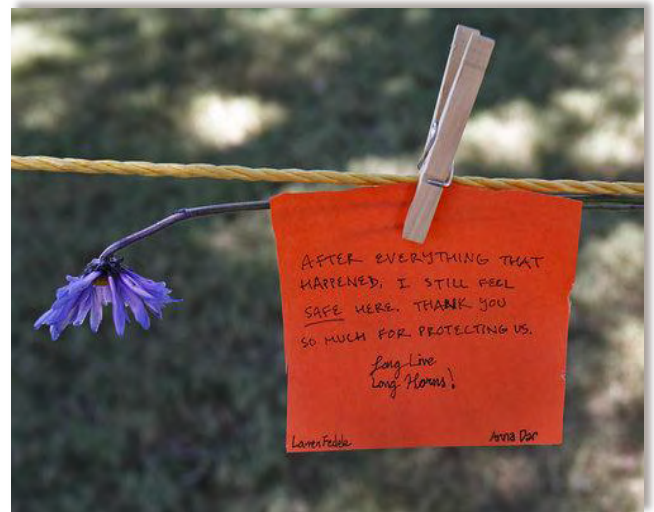 AFTER EVERYTHING THAT
HAPPENED, I STILL FEEL
SAFE HERE. THANK YOU
SO MUCH FOR PROTECTING US.
Long Live
Long Horns!
Lauren Fedele Anna Dar